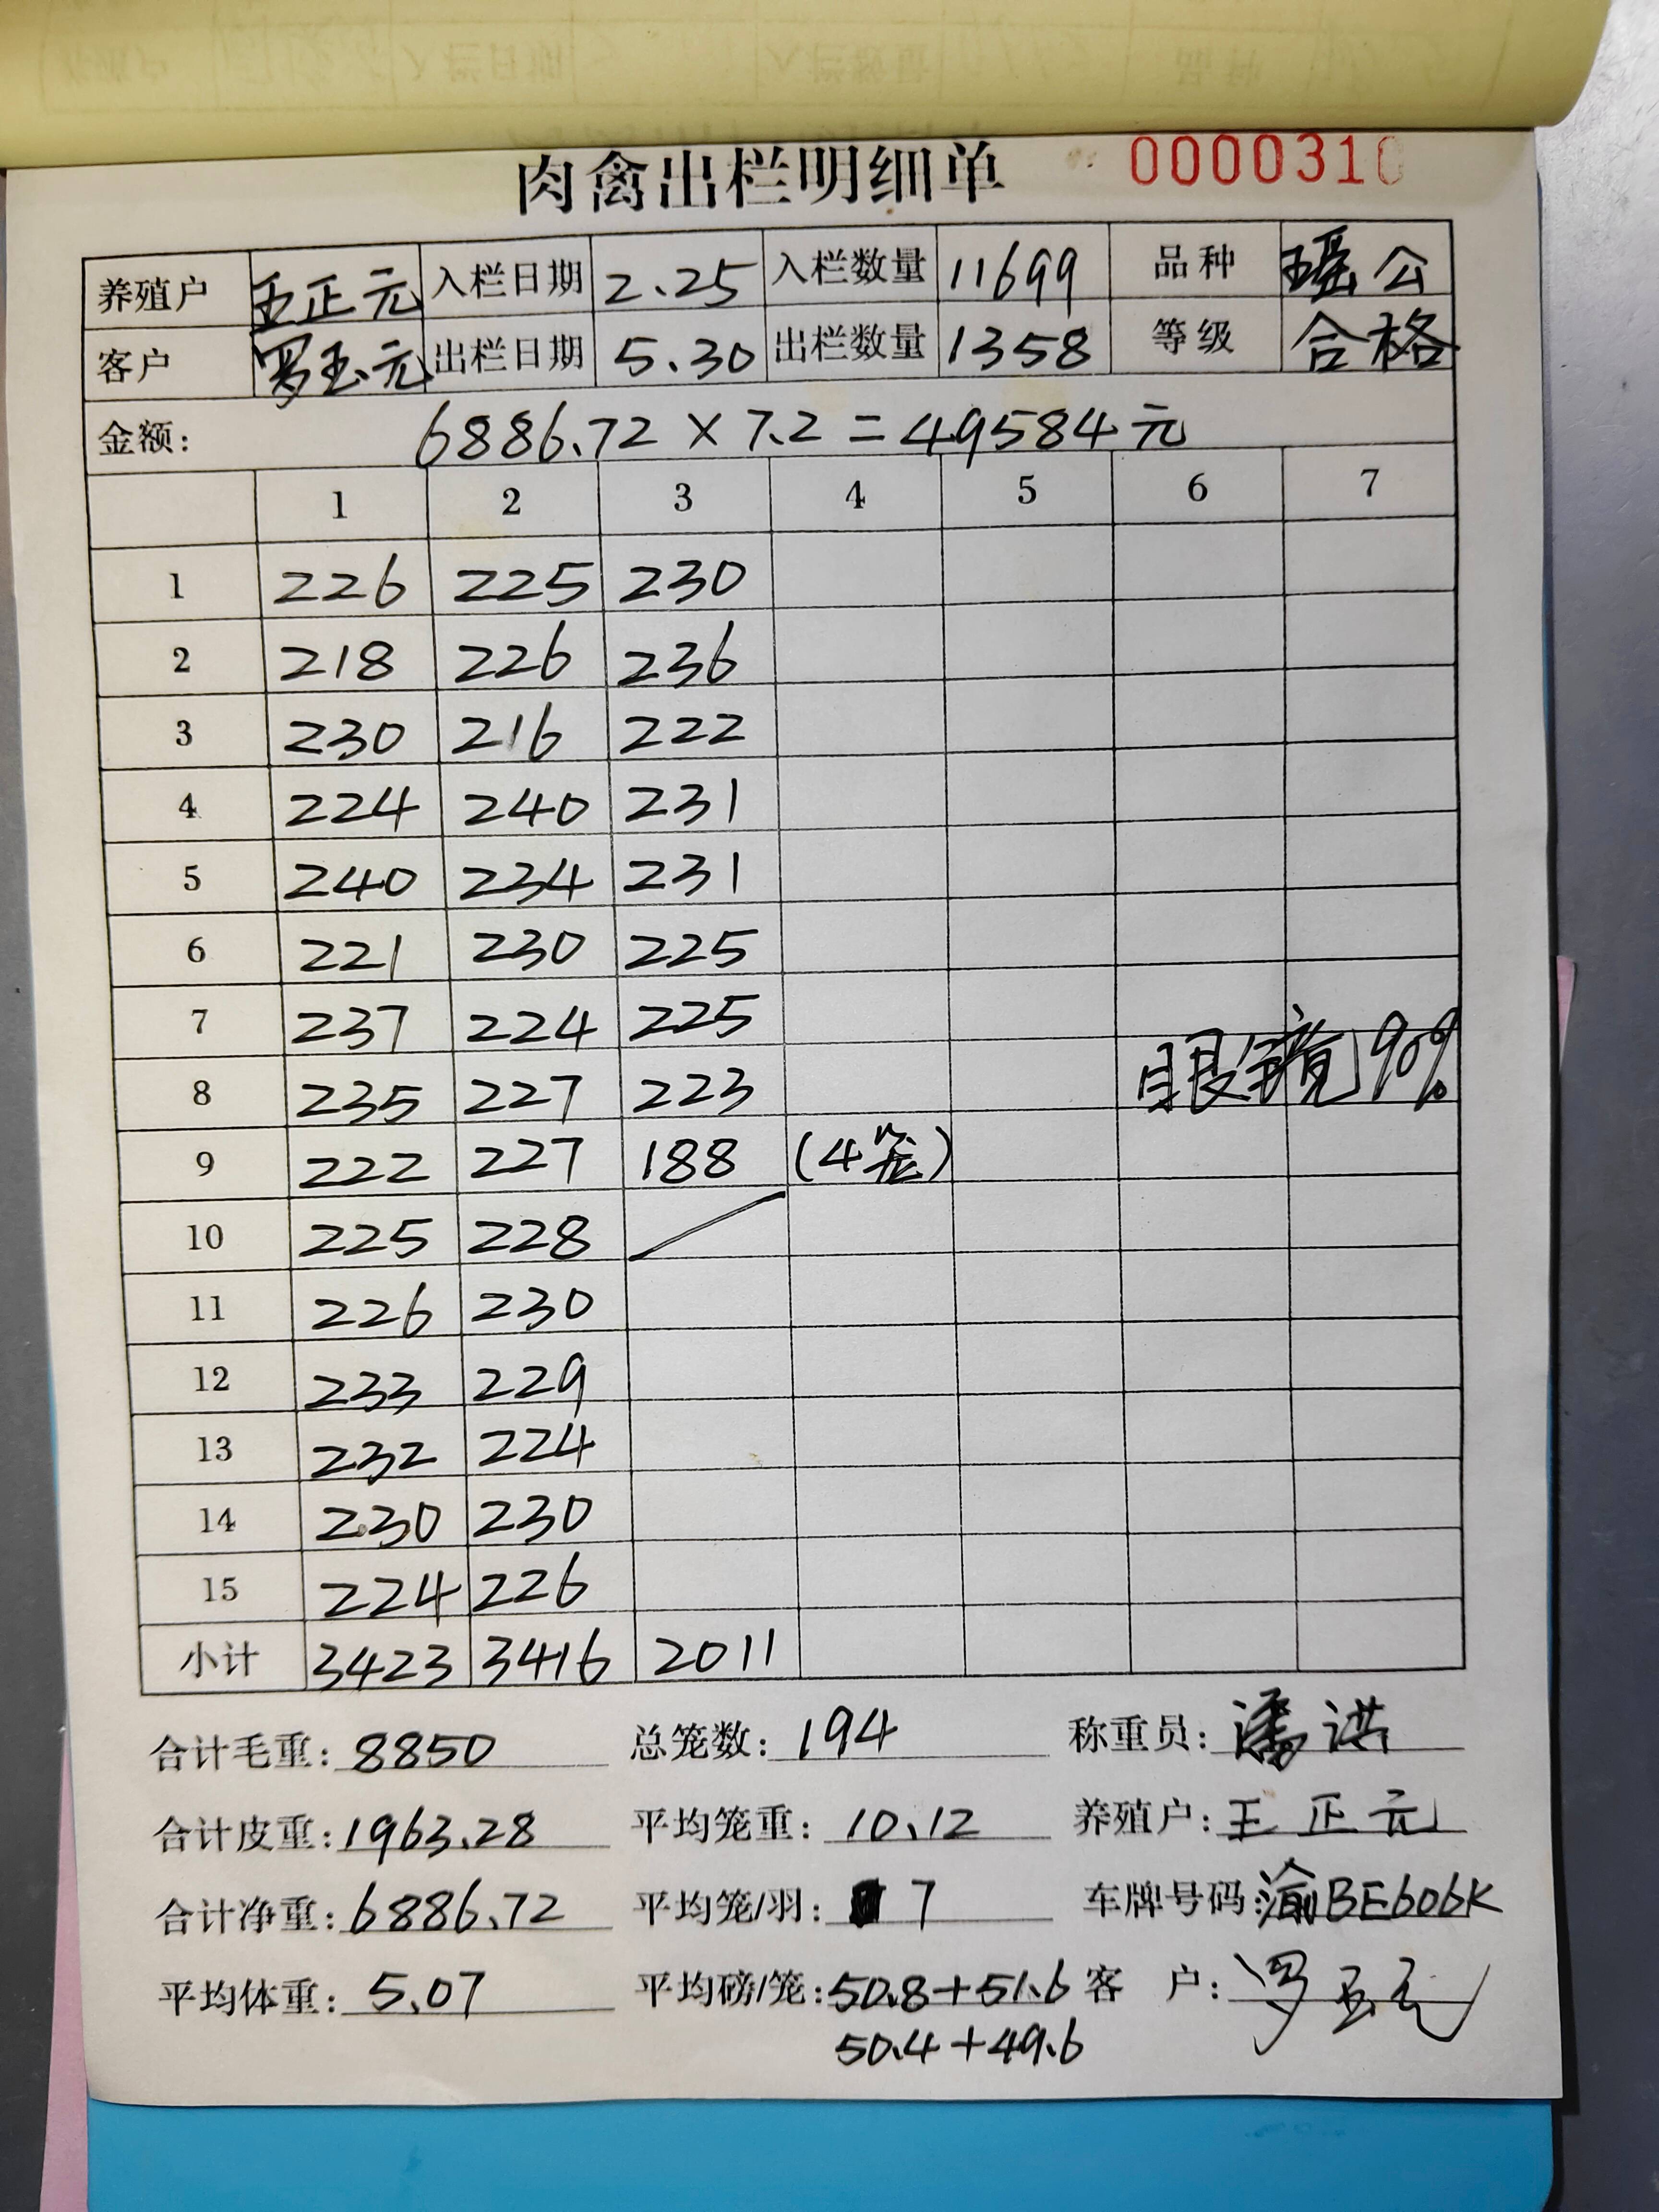 肉禽出栏明细单 0000310
养殖户 王正元 入栏日期 2.25 入栏数量 11699 品种 瑶公
客户 罗玉元 出栏日期 5.30 出栏数量 1358 等级 合格
金额: 6886.72×7.2=49584元
1 2 3 4 5 6 7
1 226 225 230
2 218 226 236
3 230 216 222
4 224 240 231
5 240 234 231
6 221 230 225
7 237 224 225
8 235 227 223 眼镜90%
9 222 227 188 (4笼)
10 225 228
11 226 230
12 233 229
13 232 224
14 230 230
15 224 226
小计 3423 3416 2011
合计毛重: 8850 总笼数: 194 称重员: 潘洪
合计皮重: 1963.28 平均笼重: 10.12 养殖户: 王正元
合计净重: 6886.72 平均笼/羽: 7 车牌号码: 渝BE606K
平均体重: 5.07 平均磅/笼: 50.8+51.6 客户: 罗玉元
50.4+49.6